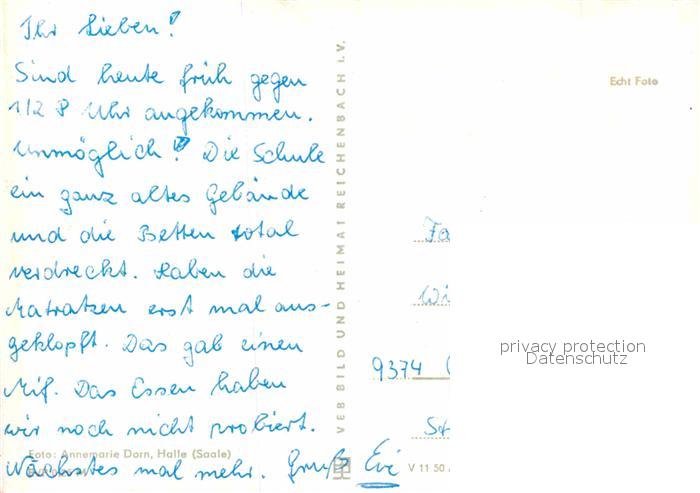 Ihr Lieben!
Sind heute früh gegen
1/2 8 Uhr angekommen.
Unmöglich! Die Schule
ein ganz altes Gebäude
und die Betten total
verdreckt. Haben die
Matratzen erst mal aus-
geklopft. Das gab einen
Mif. Das Essen haben
wir noch nicht probiert.
Nächstes mal mehr. Gruß Evi
Foto: Annemarie Dorn, Halle (Saale)
VEB BILD UND HEIMAT REICHENBACH I.V.
V 11 50
Echt Foto
Fa
Wi
9374
St
privacy protection
Datenschutz